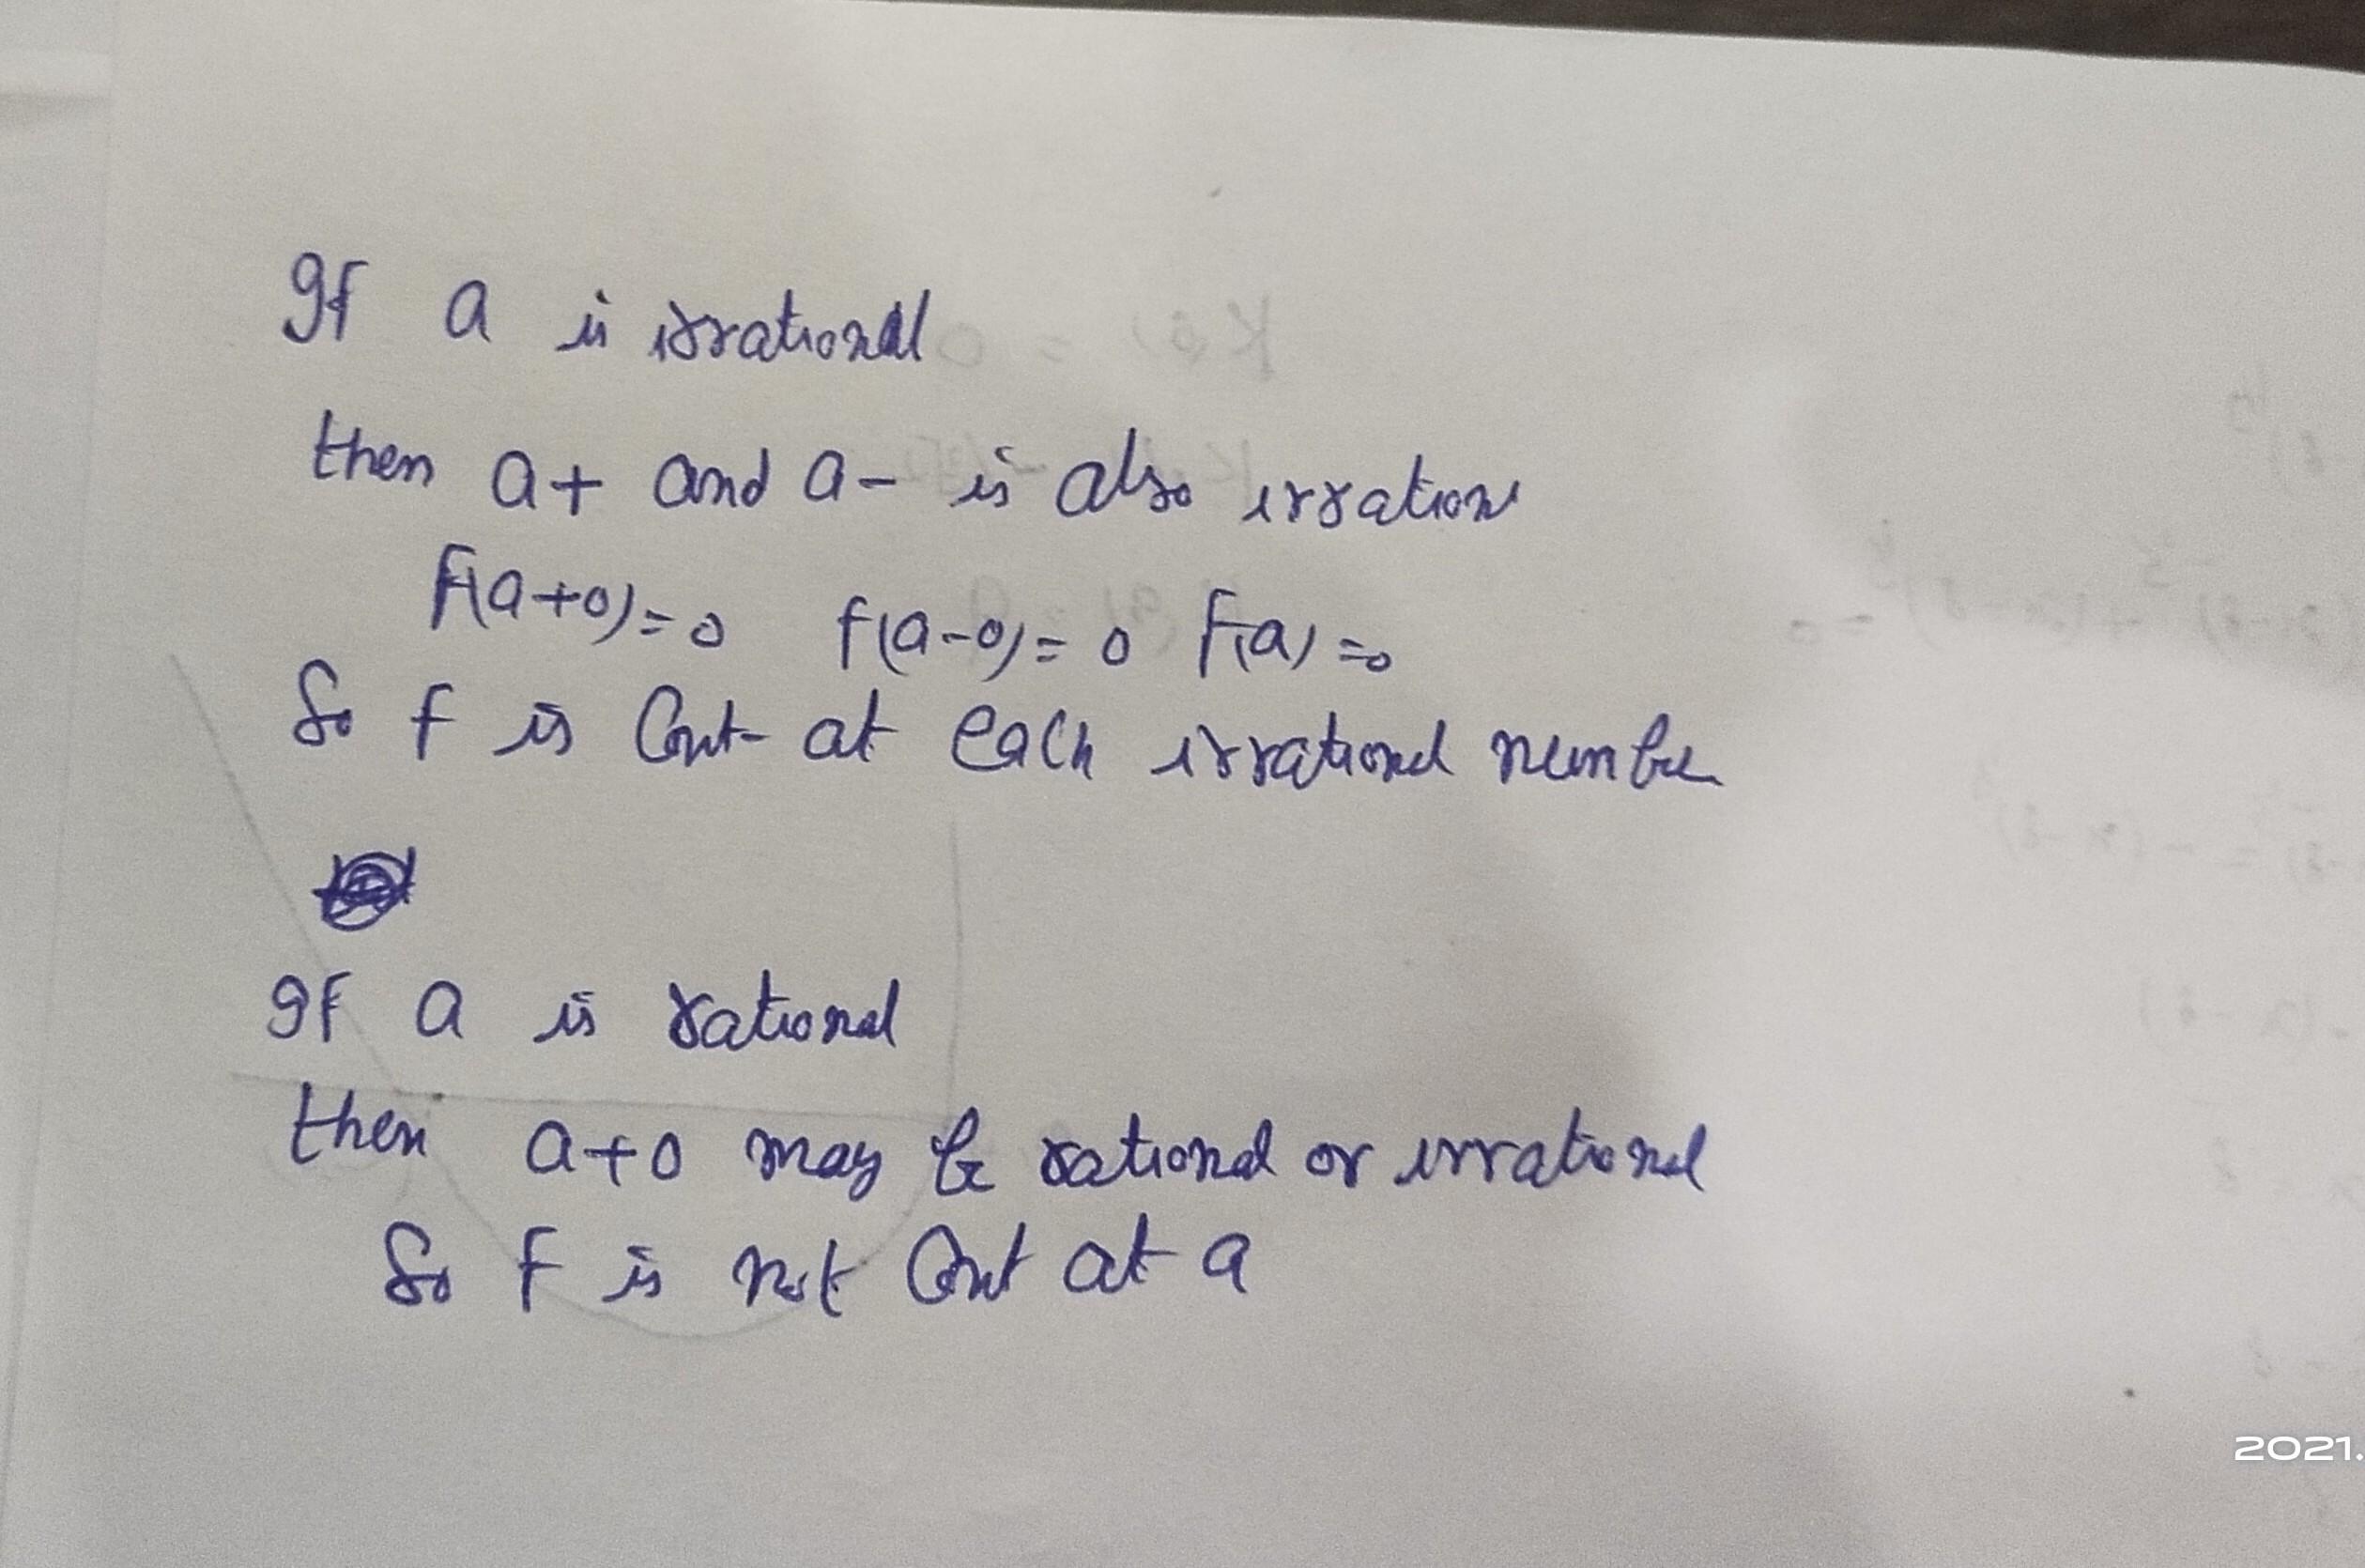 If a is irrational
then a+ and a- is also irration
f(a+0)=0 f(a-0)=0 f(a)=0
So f is Cont at each irrational number
If a is rational
then a+0 may be rational or irrational
So f is not Cont at a
2021.